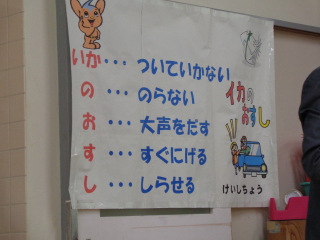 いか・・・ついていかない
の・・・のらない
お・・・大声をだす
す・・・すぐにげる
し・・・しらせる
イカの
おすし
けいしちょう